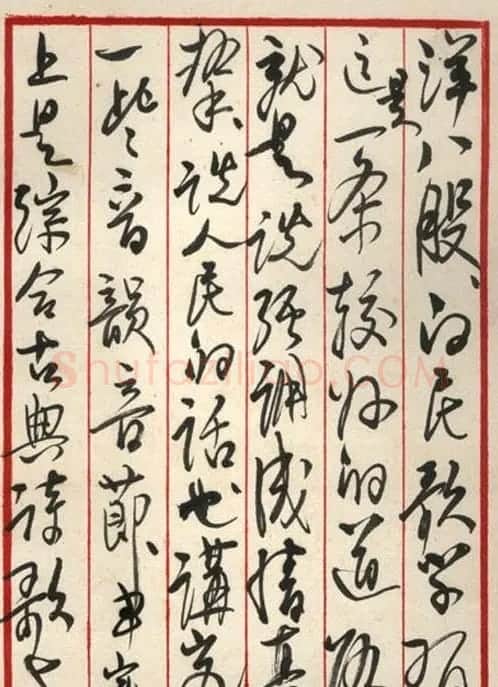 洋八股、向民歌学习
这是一条较好的道路
就是说强调感情真
挚、说人民的话也讲究
一些音韵音节事实
上是综合古典诗歌也
Shufaziliao.COM